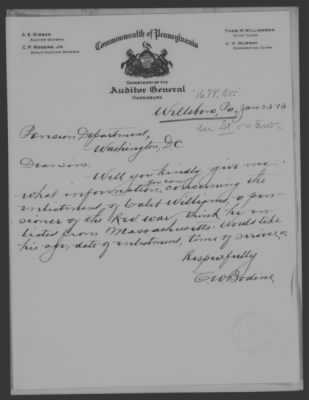 A. E. Sisson
Auditor General
C. P. Rogers, Jr.
Deputy Auditor General
Commonwealth of Pennsylvania
Thos H. Williamson
Chief Clerk
J. V. Murray
Corresponding Clerk
Department of the
Auditor General
Harrisburg
Wellsboro, Pa, Jan 23 '13
see
Pension Department,
Washington, D.C.
Dear sirs:
Will you kindly give me
what information you can concerning the
enlistment of Calet Williams, a pen-
sioner of the Rev. war, think he en-
listed from Massachusetts. Would like
his age, date of enlistment, time of service,
Respectfully
C. W. Bodine